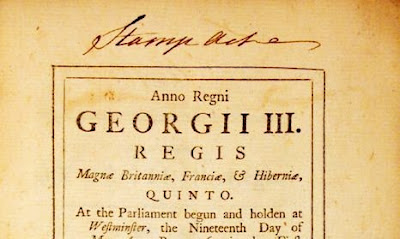 Stamp Act
Anno Regni
GEORGII III.
REGIS
Magnæ Britanniæ, Franciæ, & Hiberniæ,
QUINTO.
At the Parliament begun and holden at
Weſtminſter, the Nineteenth Day of